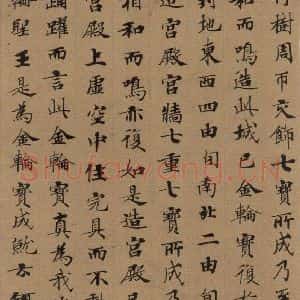 行樹周帀交飾七寶所成乃至
和而鳴造此城已金輪寶復於
封地東西四由旬南北二由旬
造宮殿宮牆七重七寶所成乃
相和而鳴亦復如是造宮殿已
宮殿上虛空中住完具而不
踊躍而言此金輪寶真為我
聖王是為金輪寶成就
Shufawang.CN